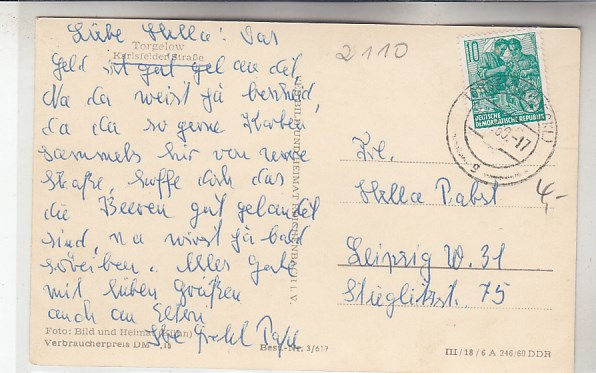 Liebe Hella! Das
Torgelow
Karlsfelder Straße
Geld ist gut gelandet
Na du weist ja bescheid,
da du so gerne Karten
sammels hir von
Straße, hoffe doch das
die Beeren gut gelandet
sind, na wirst ja bald
schreiben. Alles Gute
mit lieben Grüßen
auch an Eltern
Foto: Bild und Heimat
Verbraucherpreis DM -,15
Best.-Nr. 3/
BILD UND HEIMAT REICHENBACH I. V.
2110
10
DEUTSCHE
DEMOKRATISCHE REPUBLIK
60.-17
g
Frl.
Hella Pabst
4,-
Leipzig W. 31
Stieglitzst. 75
III/18/6 A 246/60 DDR